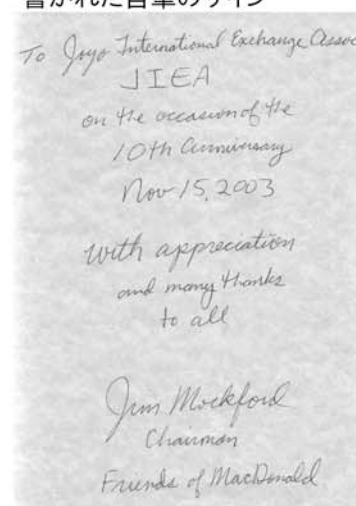 書かれた自筆のサイン
To Joyo International Exchange Assoc
JIEA
on the occasion of the
10th Anniversary
Nov 15, 2003
with appreciation
and many thanks
to all
Jim Mockford
Chairman
Friends of MacDonald